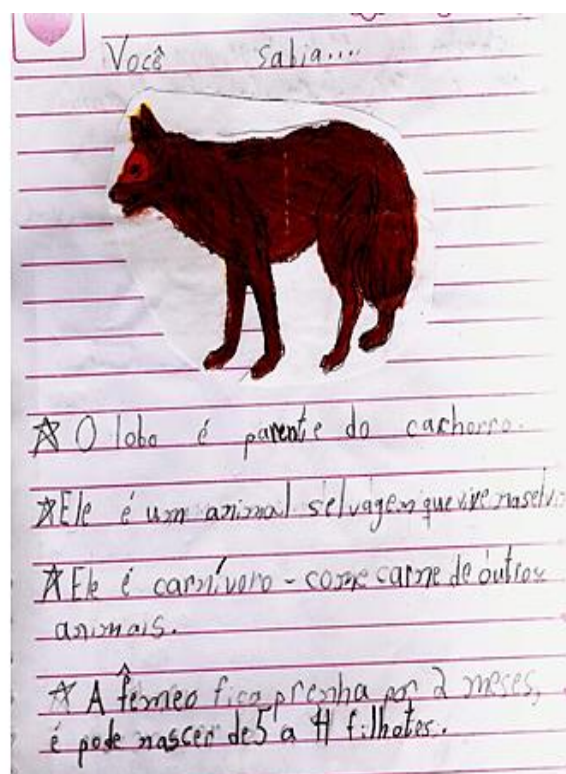 Você sabia....
☆ O lobo é parente do cachorro.
☆ Ele é um animal selvagem que vive na selv
☆ Ele é carnívoro - come carne de outros
animais.
☆ A fêmeo fica prenha por 2 meses,
é pode nascer de 5 a 11 filhotes.